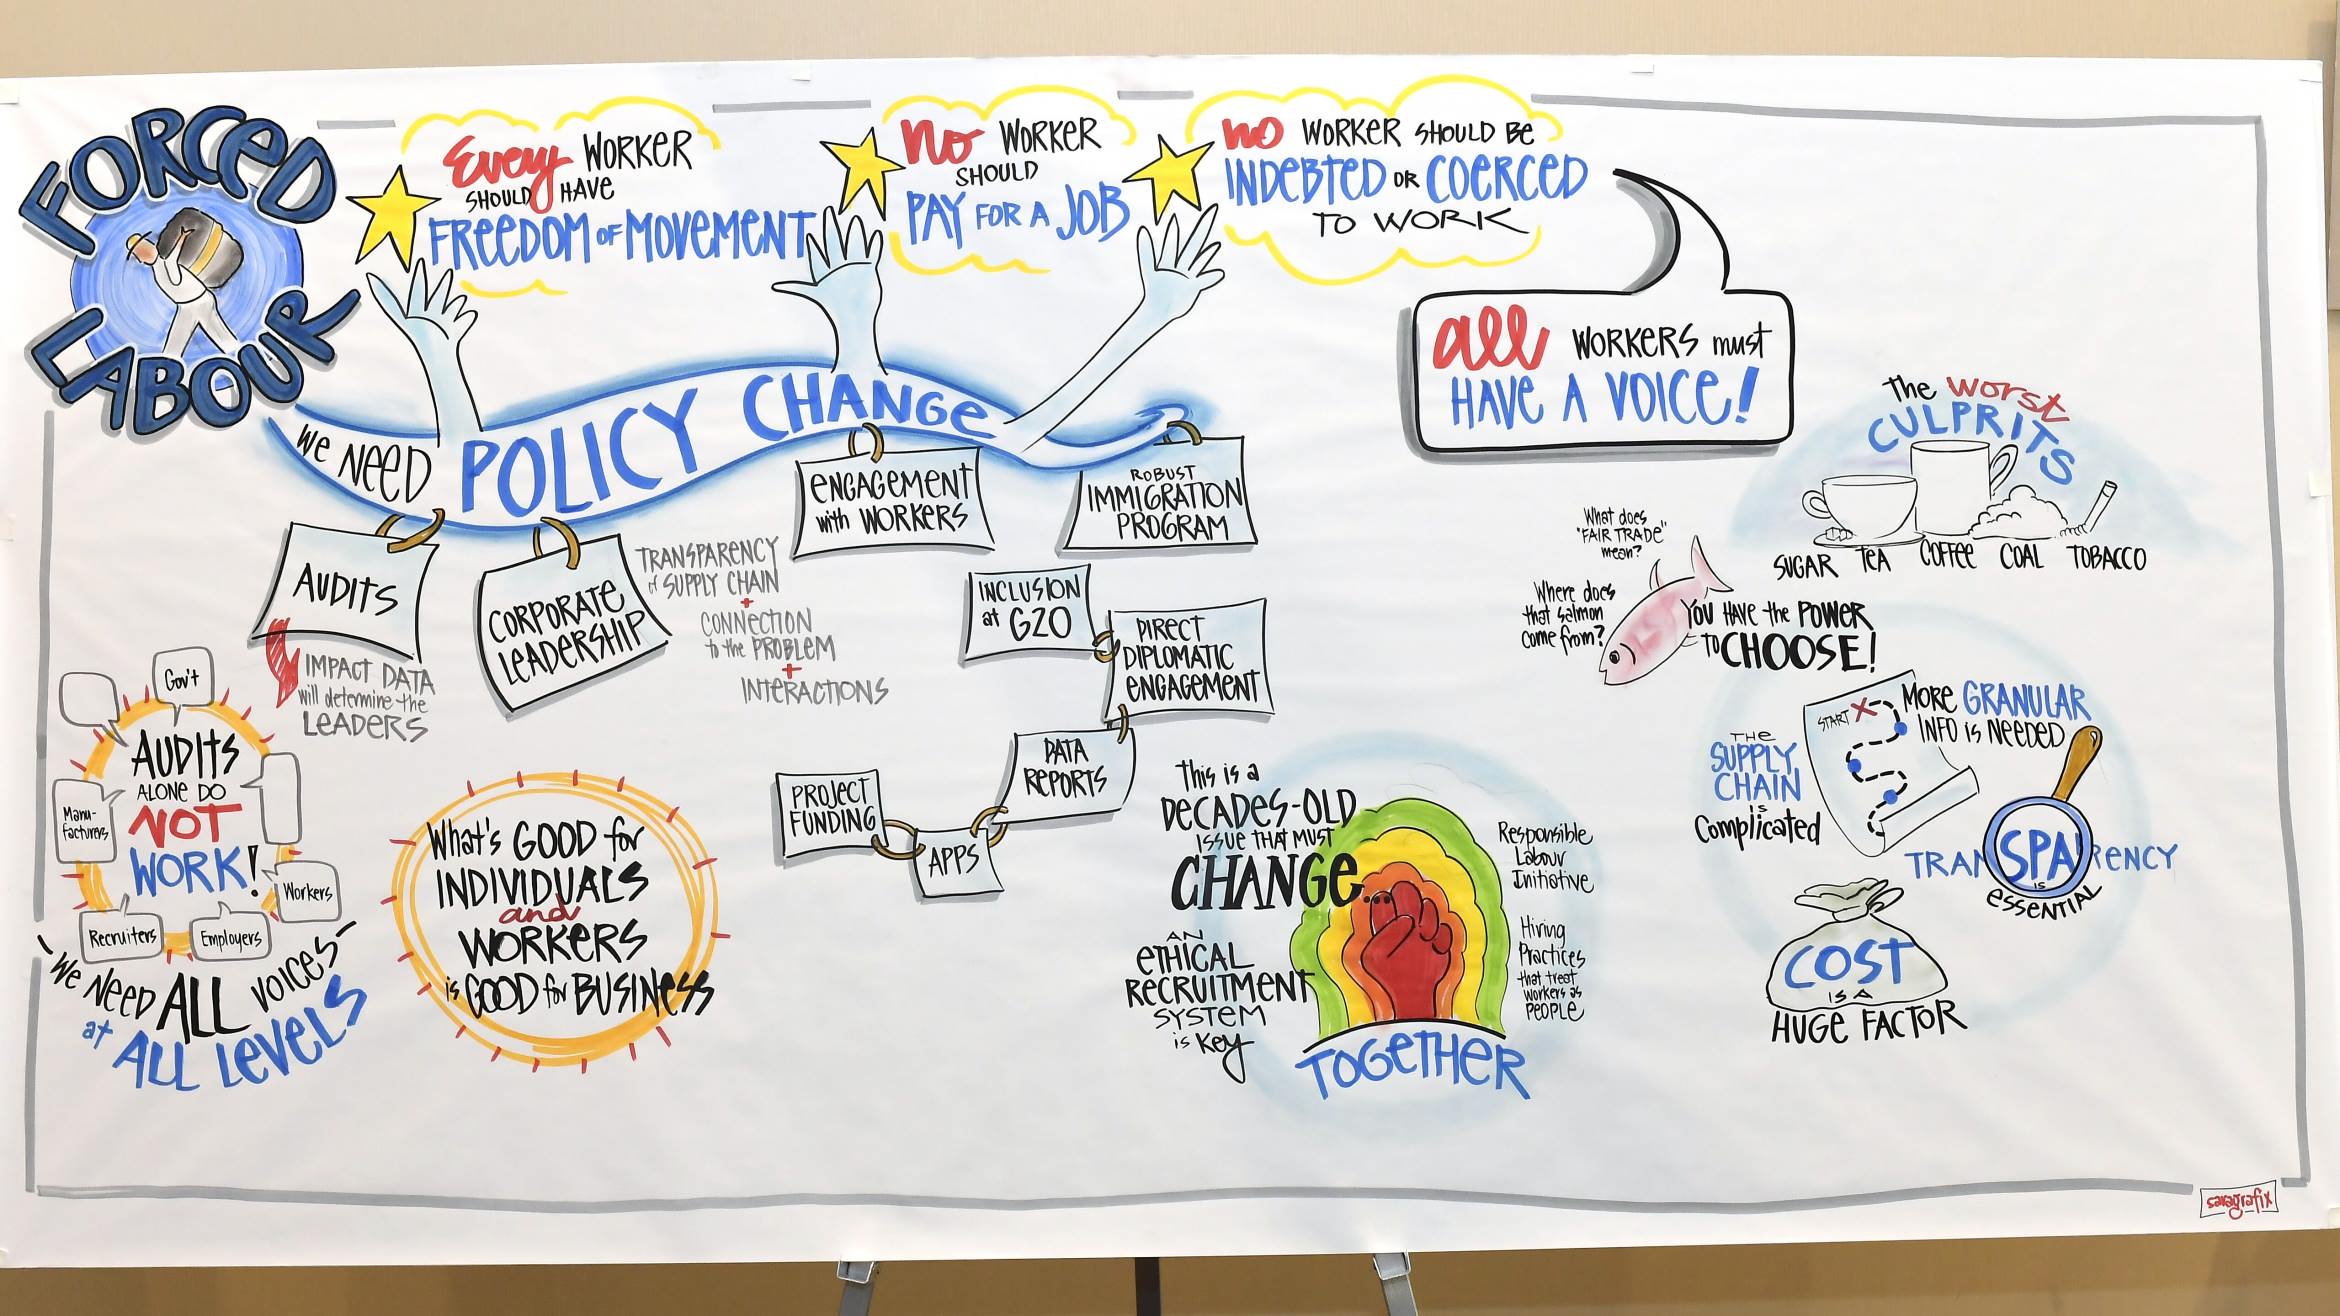 FORCED
LABOUR
Every WORKER
SHOULD HAVE
FREEDOM OF MOVEMENT
NO WORKER
SHOULD
PAY FOR A JOB
NO WORKER SHOULD BE
INDEBTED OR COERCED
TO WORK
all WORKERS must
HAVE A VOICE!
We NEED POLICY CHANGE
AUDITS
IMPACT DATA
will determine the
LEADERS
CORPORATE
LEADERSHIP
TRANSPARENCY
of SUPPLY CHAIN
+
CONNECTION
to the PROBLEM
+
INTERACTIONS
ENGAGEMENT
with WORKERS
ROBUST
IMMIGRATION
PROGRAM
INCLUSION
at G20
DIRECT
DIPLOMATIC
ENGAGEMENT
DATA
REPORTS
APPS
PROJECT
FUNDING
Gov't
Manu-
facturers
Recruiters
Employers
Workers
AUDITS
ALONE DO
NOT
WORK!
We NEED ALL VOICES
at ALL LEVELS
What's GOOD for
INDIVIDUALS
and
WORKERS
is GOOD for BUSINESS
This is a
DECADES-OLD
ISSUE THAT MUST
CHANGE...
AN
ETHICAL
RECRUITMENT
SYSTEM
is Key
TOGETHER
Responsible
Labour
Initiative
Hiring
Practices
that treat
workers as
PEOPLE
the worst
CULPRITS
SUGAR TEA COFFEE COAL TOBACCO
What does
"FAIR TRADE"
mean?
Where does
that salmon
come from?
YOU HAVE the POWER
to CHOOSE!
THE
SUPPLY
CHAIN
IS
Complicated
START X
MORE GRANULAR
INFO is NEEDED
TRANSPARENCY
IS
ESSENTIAL
COST
IS A
HUGE FACTOR
saragrafix